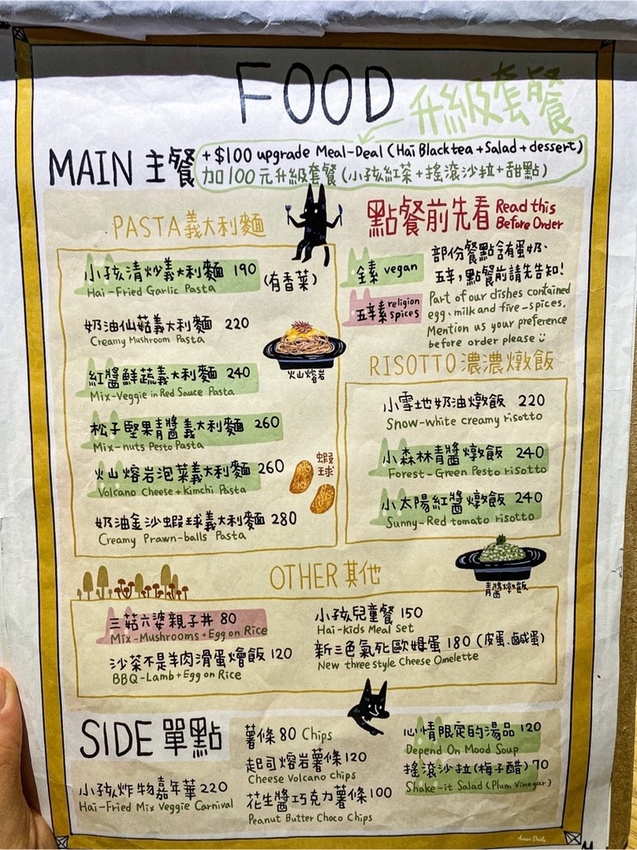 FOOD
升級套餐
MAIN 主餐
+ $100 upgrade Meal-Deal (Hai Black tea + Salad + dessert)
加100元升級套餐 (小孩紅茶+搖滾沙拉+甜點)
PASTA 義大利麵
小孩清炒義大利麵 190 (有香菜)
Hai-Fried Garlic Pasta
奶油仙菇義大利麵 220
Creamy Mushroom Pasta
火山熔岩
紅醬鮮蔬義大利麵 240
Mix-Veggie in Red Sauce Pasta
松子堅果青醬義大利麵 260
Mix-nuts Pesto Pasta
火山熔岩泡菜義大利麵 260
Volcano Cheese + Kimchi Pasta
蝦球
奶油金沙蝦球義大利麵 280
Creamy Prawn-balls Pasta
點餐前先看 Read this
Before Order
全素 vegan
五辛素 religion
spices
部份餐點含有蛋.奶.
五辛,點餐前請先告知!
Part of our dishes contained
egg, milk and five-spices,
Mention us your preference
before order please
RISOTTO 濃濃燉飯
小雪地奶油燉飯 220
Snow-white creamy risotto
小森林青醬燉飯 240
Forest-Green Pesto risotto
小太陽紅醬燉飯 240
Sunny-Red tomato risotto
青醬燉飯
OTHER 其他
三菇六婆親子丼 80
Mix-Mushrooms + Egg on Rice
沙茶不是羊肉滑蛋燴飯 120
BBQ-Lamb + Egg on Rice
小孩兒童餐 150
Hai-Kids Meal Set
新三色氣死歐姆蛋 180 (皮蛋.鹹蛋)
New three style Cheese Omelette
SIDE 單點
小孩炸物嘉年華 220
Hai-Fried Mix Veggie Carnival
薯條 80 Chips
起司熔岩薯條 120
Cheese Volcano chips
花生醬巧克力薯條 100
Peanut Butter Choco Chips
心情限定的湯品 120
Depend On Mood Soup
搖滾沙拉(梅子醋) 70
Shake-it Salad (Plum Vinegar)